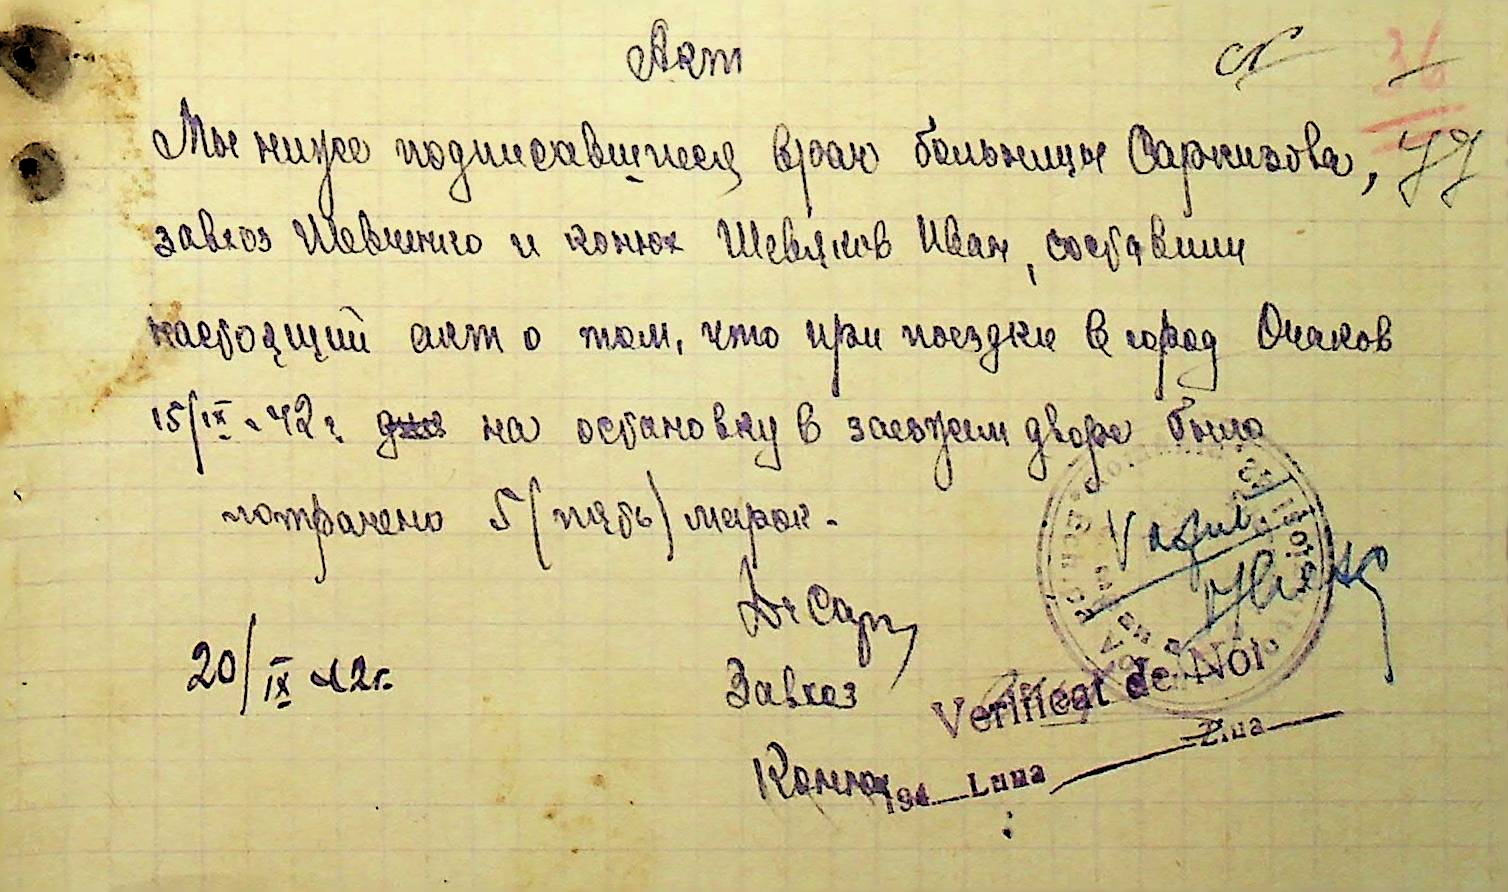 Акт
36
Мы ниже подписавшиеся врач больницы Саркизова,
завхоз Шевченко и конюх Шевяков Иван, составили
настоящий акт о том, что при поездке в город Очаков
15/IX - 42 г. на остановку в заезжем дворе было
потрачено 5 (пять) марок.
20/IX 42 г.
Завхоз
Verificat de Noi
Конюх
194 Luna Ziua